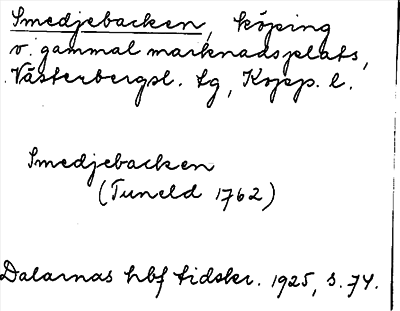 Smedjebacken, köping
o. gammal marknadsplats,
Västerbergsl. tg, Kopp. l.
Smedjebacken
(Tuneld 1762)
Dalarnas hbf tidskr. 1925, s. 74.